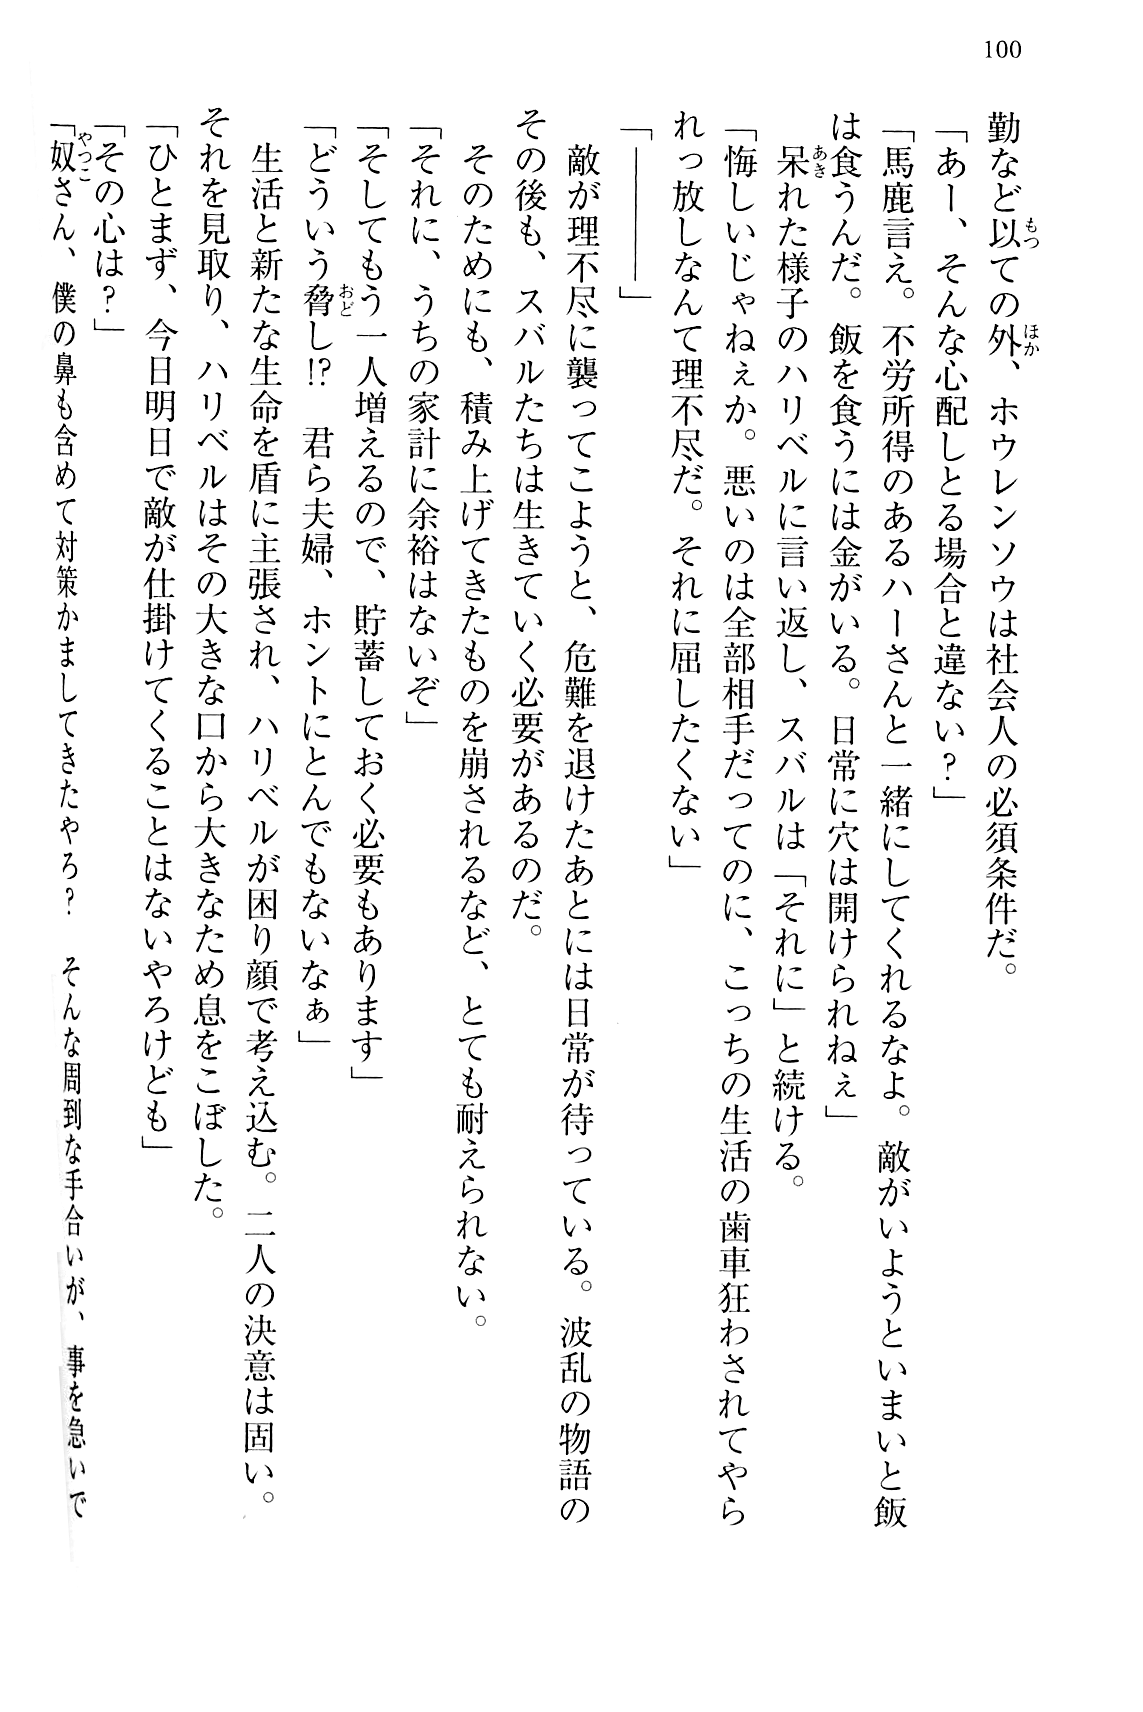 100
勤など以ての外、ホウレンソウは社会人の必須条件だ。
「あー、そんな心配しとる場合と違ない？」
「馬鹿言え。不労所得のあるハーさんと一緒にしてくれるなよ。敵がいようといまいと飯
は食うんだ。飯を食うには金がいる。日常に穴は開けられねぇ」
呆れた様子のハリベルに言い返し、スバルは「それに」と続ける。
「悔しいじゃねぇか。悪いのは全部相手だってのに、こっちの生活の歯車狂わされてやら
れっ放しなんて理不尽だ。それに屈したくない」
「――――」
敵が理不尽に襲ってこようと、危難を退けたあとには日常が待っている。波乱の物語の
その後も、スバルたちは生きていく必要があるのだ。
そのためにも、積み上げてきたものを崩されるなど、とても耐えられない。
「それに、うちの家計に余裕はないぞ」
「そしてもう一人増えるので、貯蓄しておく必要もあります」
「どういう脅し!?　君ら夫婦、ホントにとんでもないなぁ」
生活と新たな生命を盾に主張され、ハリベルが困り顔で考え込む。二人の決意は固い。
それを見取り、ハリベルはその大きな口から大きなため息をこぼした。
「ひとまず、今日明日で敵が仕掛けてくることはないやろけども」
「その心は？」
「奴さん、僕の鼻も含めて対策かましてきたやろ？　そんな周到な手合いが、事を急いで